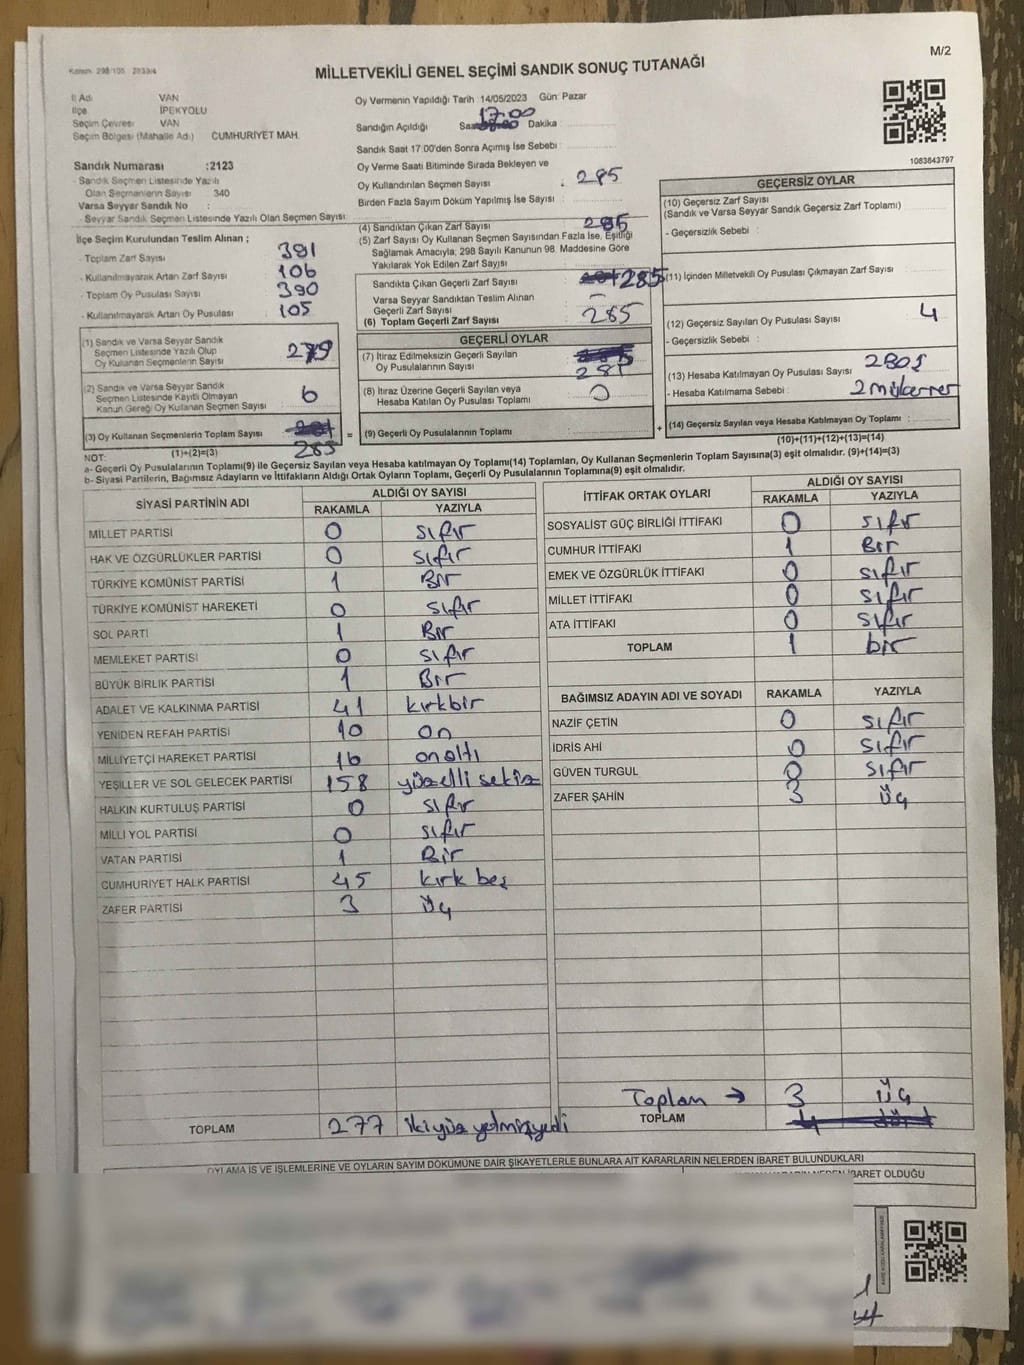 M/2
Kanun 298/105
MİLLETVEKİLİ GENEL SEÇİMİ SANDIK SONUÇ TUTANAĞI
İl Adı VAN
İlçe İPEKYOLU
Seçim Çevresi VAN
Seçim Bölgesi (Mahalle Adı) CUMHURİYET MAH.
Sandık Numarası :2123
- Sandık Seçmen Listesinde Yazılı
Olan Seçmenlerin Sayısı : 340
Varsa Seyyar Sandık No :
- Seyyar Sandık Seçmen Listesinde Yazılı Olan Seçmen Sayısı:
İlçe Seçim Kurulundan Teslim Alınan ;
- Toplam Zarf Sayısı : 391
- Kullanılmayarak Artan Zarf Sayısı : 106
- Toplam Oy Pusulası Sayısı : 390
- Kullanılmayarak Artan Oy Pusulası : 105
(1) Sandık ve Varsa Seyyar Sandık
Seçmen Listesinde Yazılı Olup
Oy Kullanan Seçmenlerin Sayısı : 279
(2) Sandık ve Varsa Seyyar Sandık
Seçmen Listesinde Kayıtlı Olmayan
Kanun Gereği Oy Kullanan Seçmen Sayısı : 6
(3) Oy Kullanan Seçmenlerin Toplam Sayısı
(1)+(2)=(3) 285
Oy Vermenin Yapıldığı Tarih :14/05/2023 Gün: Pazar
Sandığın Açıldığı Saat 17:00 Dakika :
Sandık Saat 17:00'den Sonra Açımış İse Sebebi :
Oy Verme Saati Bitiminde Sırada Bekleyen ve
Oy Kullandırılan Seçmen Sayısı : 285
Birden Fazla Sayım Döküm Yapılmış İse Sayısı :
(4) Sandıktan Çıkan Zarf Sayısı : 285
(5) Zarf Sayısı Oy Kullanan Seçmen Sayısından Fazla İse, Eşitliği
Sağlamak Amacıyla; 298 Sayılı Kanunun 98. Maddesine Göre
Yakılarak Yok Edilen Zarf Sayısı :
Sandıkta Çıkan Geçerli Zarf Sayısı : 285
Varsa Seyyar Sandıktan Teslim Alınan
Geçerli Zarf Sayısı : –
(6) Toplam Geçerli Zarf Sayısı : 285
GEÇERLİ OYLAR
(7) İtiraz Edilmeksizin Geçerli Sayılan
Oy Pusulalarının Sayısı : 281
(8) İtiraz Üzerine Geçerli Sayılan veya
Hesaba Katılan Oy Pusulası Toplamı : 0
= (9) Geçerli Oy Pusulalarının Toplamı :
1083843797
GEÇERSİZ OYLAR
(10) Geçersiz Zarf Sayısı
(Sandık ve Varsa Seyyar Sandık Geçersiz Zarf Toplamı) :
- Geçersizlik Sebebi :
(11) İçinden Milletvekili Oy Pusulası Çıkmayan Zarf Sayısı :
(12) Geçersiz Sayılan Oy Pusulası Sayısı : 4
- Geçersizlik Sebebi :
(13) Hesaba Katılmayan Oy Pusulası Sayısı :
- Hesaba Katılmama Sebebi : 2 mükerrer
+ (14) Geçersiz Sayılan veya Hesaba Katılmayan Oy Toplamı :
(10)+(11)+(12)+(13)=(14)
NOT:
a- Geçerli Oy Pusulalarının Toplamı(9) ile Geçersiz Sayılan veya Hesaba katılmayan Oy Toplamı(14) Toplamları, Oy Kullanan Seçmenlerin Toplam Sayısına(3) eşit olmalıdır. (9)+(14)=(3)
b- Siyasi Partilerin, Bağımsız Adayların ve İttifakların Aldığı Ortak Oyların Toplamı, Geçerli Oy Pusulalarının Toplamına(9) eşit olmalıdır.
SİYASİ PARTİNİN ADI ALDIĞI OY SAYISI
RAKAMLA YAZIYLA
MİLLET PARTİSİ 0 sıfır
HAK VE ÖZGÜRLÜKLER PARTİSİ 0 sıfır
TÜRKİYE KOMÜNİST PARTİSİ 1 Bir
TÜRKİYE KOMÜNİST HAREKETİ 0 sıfır
SOL PARTİ 1 Bir
MEMLEKET PARTİSİ 0 sıfır
BÜYÜK BİRLİK PARTİSİ 1 Bir
ADALET VE KALKINMA PARTİSİ 41 kırkbir
YENİDEN REFAH PARTİSİ 10 on
MİLLİYETÇİ HAREKET PARTİSİ 16 onaltı
YEŞİLLER VE SOL GELECEK PARTİSİ 158 yüzelli sekiz
HALKIN KURTULUŞ PARTİSİ 0 sıfır
MİLLİ YOL PARTİSİ 0 sıfır
VATAN PARTİSİ 1 Bir
CUMHURİYET HALK PARTİSİ 45 kırk beş
ZAFER PARTİSİ 3 üç
TOPLAM 277 ikiyüz yetmişyedi
İTTİFAK ORTAK OYLARI ALDIĞI OY SAYISI
RAKAMLA YAZIYLA
SOSYALİST GÜÇ BİRLİĞİ İTTİFAKI 0 sıfır
CUMHUR İTTİFAKI 1 Bir
EMEK VE ÖZGÜRLÜK İTTİFAKI 0 sıfır
MİLLET İTTİFAKI 0 sıfır
ATA İTTİFAKI 0 sıfır
TOPLAM 1 bir
BAĞIMSIZ ADAYIN ADI VE SOYADI RAKAMLA YAZIYLA
NAZİF ÇETİN 0 sıfır
İDRİS AHİ 0 sıfır
GÜVEN TURGUL 0 sıfır
ZAFER ŞAHİN 3 üç
Toplam → 3 üç
TOPLAM
OYLAMA İŞ VE İŞLEMLERİNE VE OYLARIN SAYIM DÖKÜMÜNE DAİR ŞİKAYETLERLE BUNLARA AİT KARARLARIN NELERDEN İBARET BULUNDUKLARI
NEDEN İBARET OLDUĞU